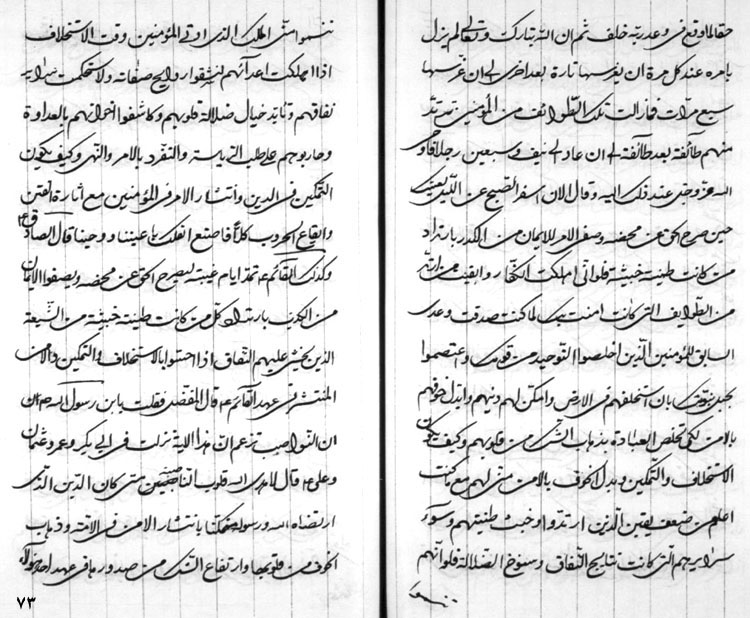 حقا لما وقع فى وعد ربه خلف ثم ان الله تبارك وتعالى لم يزل
يامره عند كل مرة ان يغرسها تارة بعد اخرى الى ان غرسها
سبع مرات فمازالت تلك الطوائف من المؤمنين ترتد
منهم طائفة بعد طائفة الى ان عاد الى نيف وسبعين رجلا فاوحى
الله عز وجل عند ذلك اليه وقال الان اسفر الصبح عن الليل لعينك
حين صرح الحق عن محضه وصفى الامر للايمان من الكدر بارتداد
من كانت طينته خبيثة فلو انى اهلكت الكفار وابقيت من ارتد
من الطوايف التى كانت امنت بك لما كنت صدقت وعدى
السابق للمؤمنين الذين اخلصوا التوحيد من قومك واعتصموا
بحبل نبوتك بان استخلفهم فى الارض وامكن لهم دينهم وابدل خوفهم
بالامن لكى تخلص العبادة بذهاب الشك من قلوبهم وكيف يكون
الاستخلاف والتمكين وبدل الخوف بالامن منى لهم مع ما كنت
اعلم من ضعف يقين الذين ارتدوا وخبث طينتهم وسوء
سرايرهم التى كانت نتايج النفاق وسنوخ الضلالة فلو انهم
تنسموا
تنسموا منى الملك الذى اوتى المؤمنين وقت الاستخلاف
اذا اهلكت اعدائهم لنشقوا روايح صفاته ولاستحكمت سراير
نفاقهم وتابد خيال ضلالة قلوبهم وكاشفوا اخوانهم بالعداوة
وحاربوهم على طلب الرياسة والتفرد بالامر والنهى وكيف يكون
التمكين فى الدين وانتشار الامر فى المؤمنين مع اثارة الفتن
وايقاع الحروب كلا فاصنع الفلك باعيننا ووحينا قال الصادق ع
وكذلك القائم ع تمتد ايام غيبته ليصرح الحق عن محضه ويصفوا الايمان
من الكدر بارتداد كل من كانت طينته خبيثة من الشيعة
الذين يخشى عليهم النفاق اذا احسوا بالاستخلاف والتمكين والامن
المنتشر فى عهد القائم ع قال المفضل فقلت يابن رسول الله ص
ان النواصب تزعم ان هذا الاية نزلت فى ابى بكر وعمر وعثمان
وعلى ع قال لا يهدى الله قلوب الناصبين متى كان الدين الذى
ارتضاه الله ورسوله متمكنا بانتشار الامن فى الامة وذهاب
الخوف من قلوبها وارتفاع الشك من صدورها فى عهد احد
٧٣